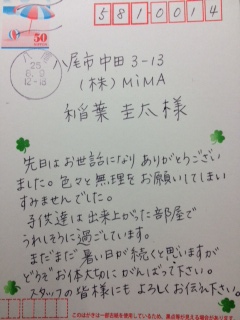 5810014
50
八尾
25
12-18
八尾市中田3-13
(株)MiMA
稲葉 圭太様
先日はお世話になり ありがとうござい
ました。色々と無理をお願いしてしまい
すみませんでした。
子供達は出来上がった部屋で
うれしそうに過ごしています。
まだまだ暑い日が続くと思いますが
どうぞお体大切にがんばって下さい。
スタッフの皆様にもよろしくお伝え下さい。